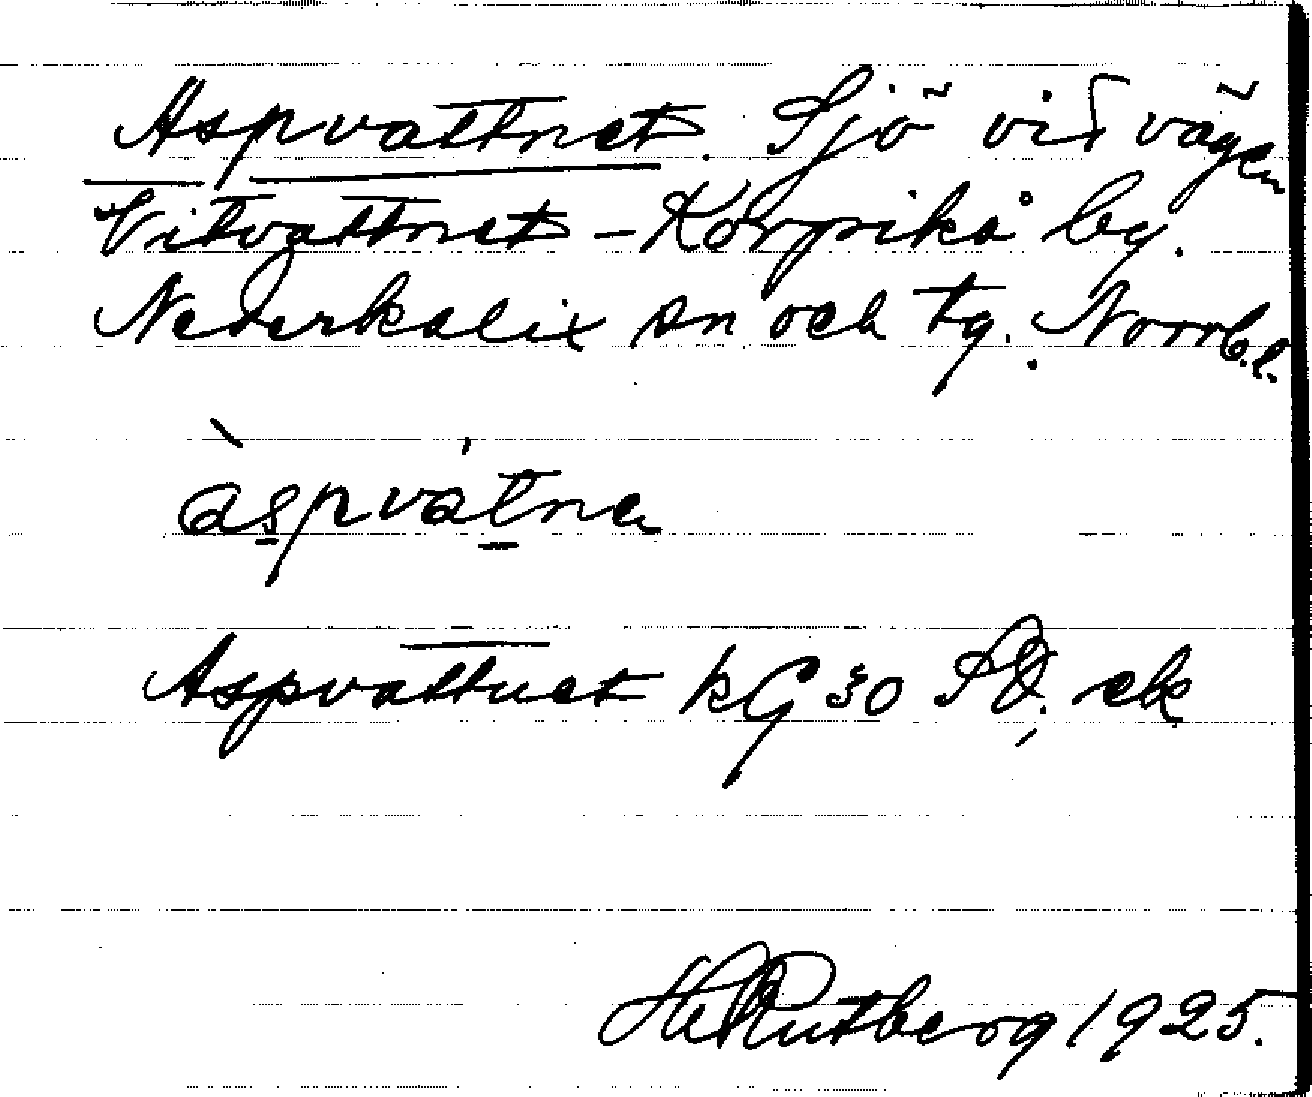 Aspvattnet. Sjö vid vägen
Vitvattnet - Korpikå by.
Nederkalix sn och tg. Norrb.l.
àspvátne
Aspvattnet kG 30 SV. ek
Hel Rutberg 1925.